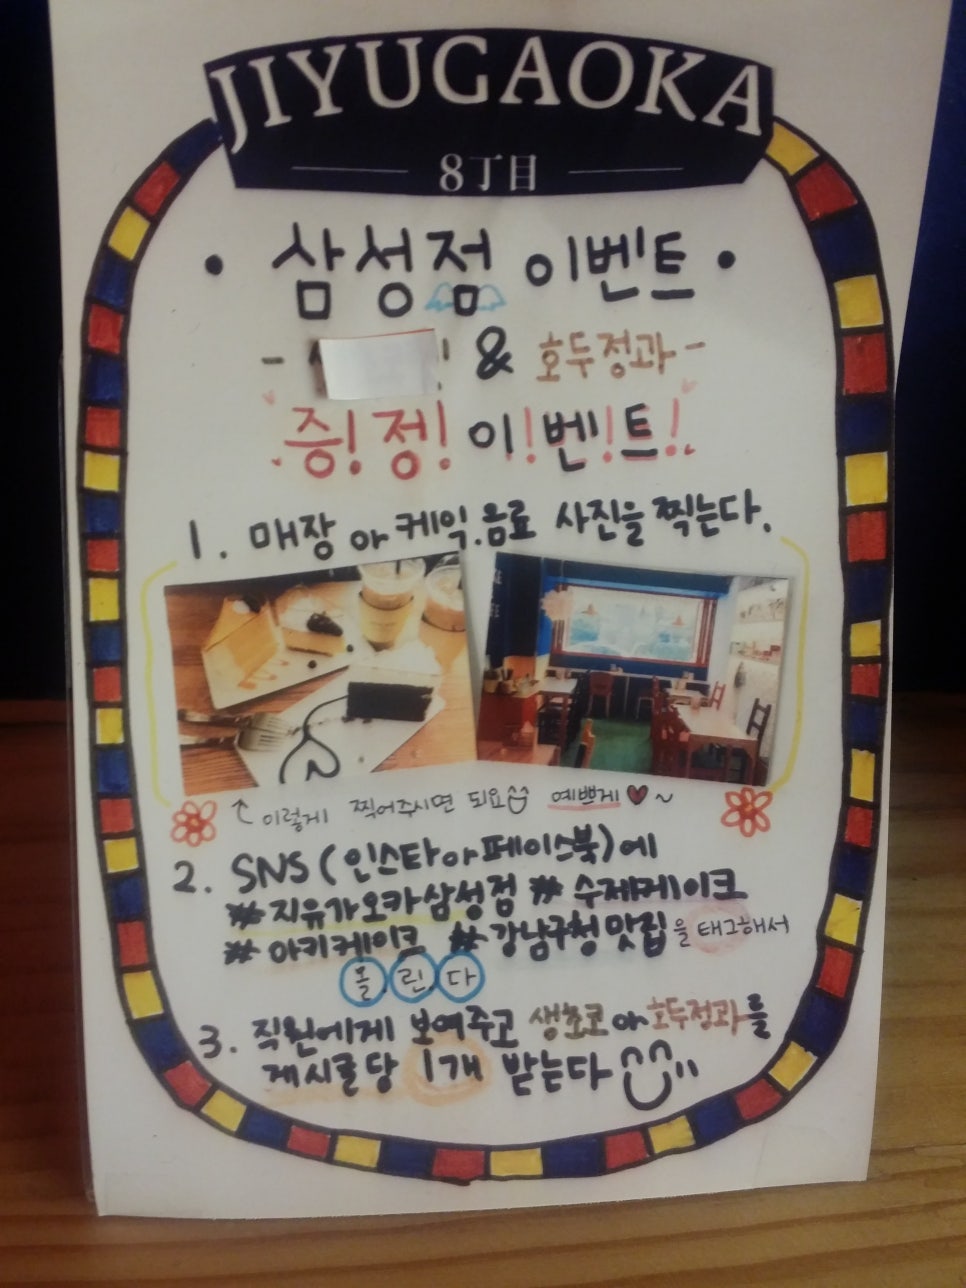 JIYUGAOKA
8丁目
· 삼성점 이벤트 ·
- ! & 호두정과 -
증! 정! 이!벤!트!
1. 매장 or 케익.음료 사진을 찍는다.
이렇게 찍어주시면 되요 예쁘게 ♥~
2. SNS (인스타or페이스북)에
#지유가오카삼성점 # 수제케이크
# 아키케이크 # 강남구청 맛집을 태그해서
올.린.다
3. 직원에게 보여주고 생초코or호두정과를
게시글당 1개 받는다